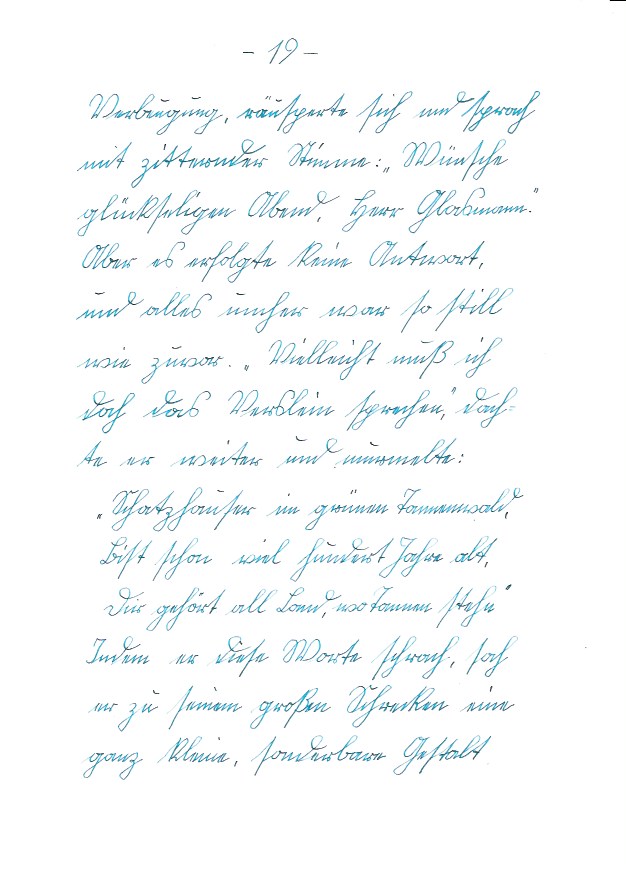 - 19 -
Verbeugung, räusperte sich und sprach
mit zitternder Stimme: „Wünsche
glückseligen Abend, Herr Glasmann."
Aber es erfolgte keine Antwort,
und alles umher war so still
wie zuvor. „Vielleicht muß ich
doch das Verslein sprechen", dach-
te er weiter und murmelte:
„Schatzhauser im grünen Tannenwald,
Bist schon viel hundert Jahre alt,
Dir gehört all Land, wo Tannen stehn"
Indem er diese Worte sprach, sah
er zu seinem großen Schrecken eine
ganz kleine, sonderbare Gestalt